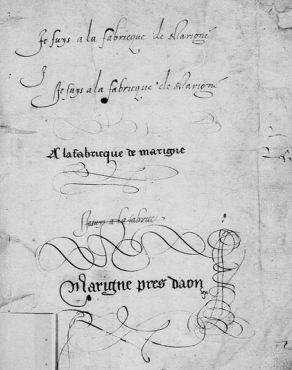 Je suys a la fabricque de Marigné
J
Je suys a la fabricque de Marigné
A la fabricque de marigne
a la fabric
Marigne pres daon